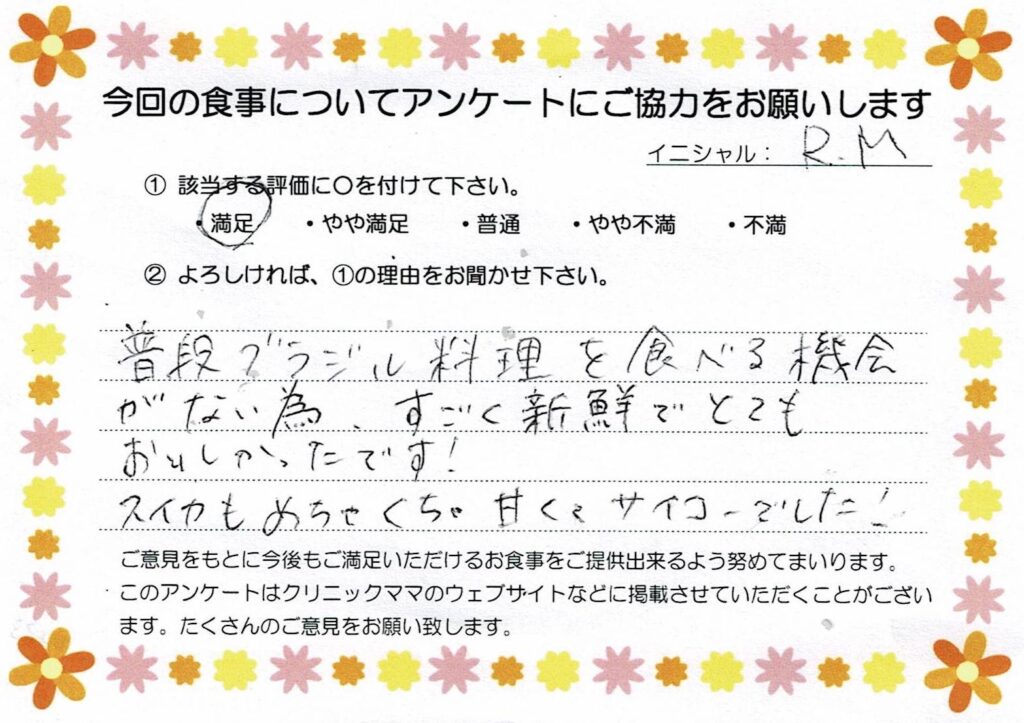 今回の食事についてアンケートにご協力をお願いします
イニシャル： R.M
① 該当する評価に○を付けて下さい。
・満足 ・やや満足 ・普通 ・やや不満 ・不満
② よろしければ、①の理由をお聞かせ下さい。
普段ブラジル料理を食べる機会
がない為、すごく新鮮でとても
おいしかったです！
スイカもめちゃくちゃ甘くてサイコーでした！
ご意見をもとに今後もご満足いただけるお食事をご提供出来るよう努めてまいります。
このアンケートはクリニックママのウェブサイトなどに掲載させていただくことがござい
ます。たくさんのご意見をお願い致します。